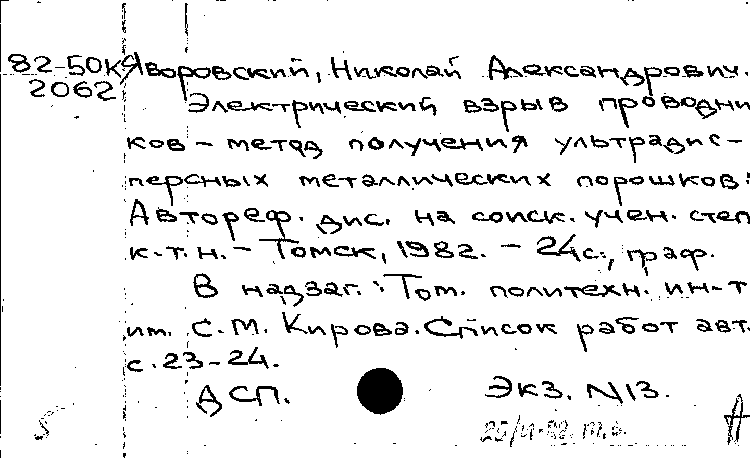 82-50К Яворовский, Николай Александрович.
2062 Электрический взрыв проводни
ков - метод получения ультрадис-
персных металлических порошков:
Автореф. дис. на соиск. учен. степ
к.т.н. - Томск, 1982. - 24с., граф.
В надзаг.: Том. политехн. ин-т
им. С.М. Кирова. Список работ авт.
с. 23-24.
ДСП. Экз. N13.